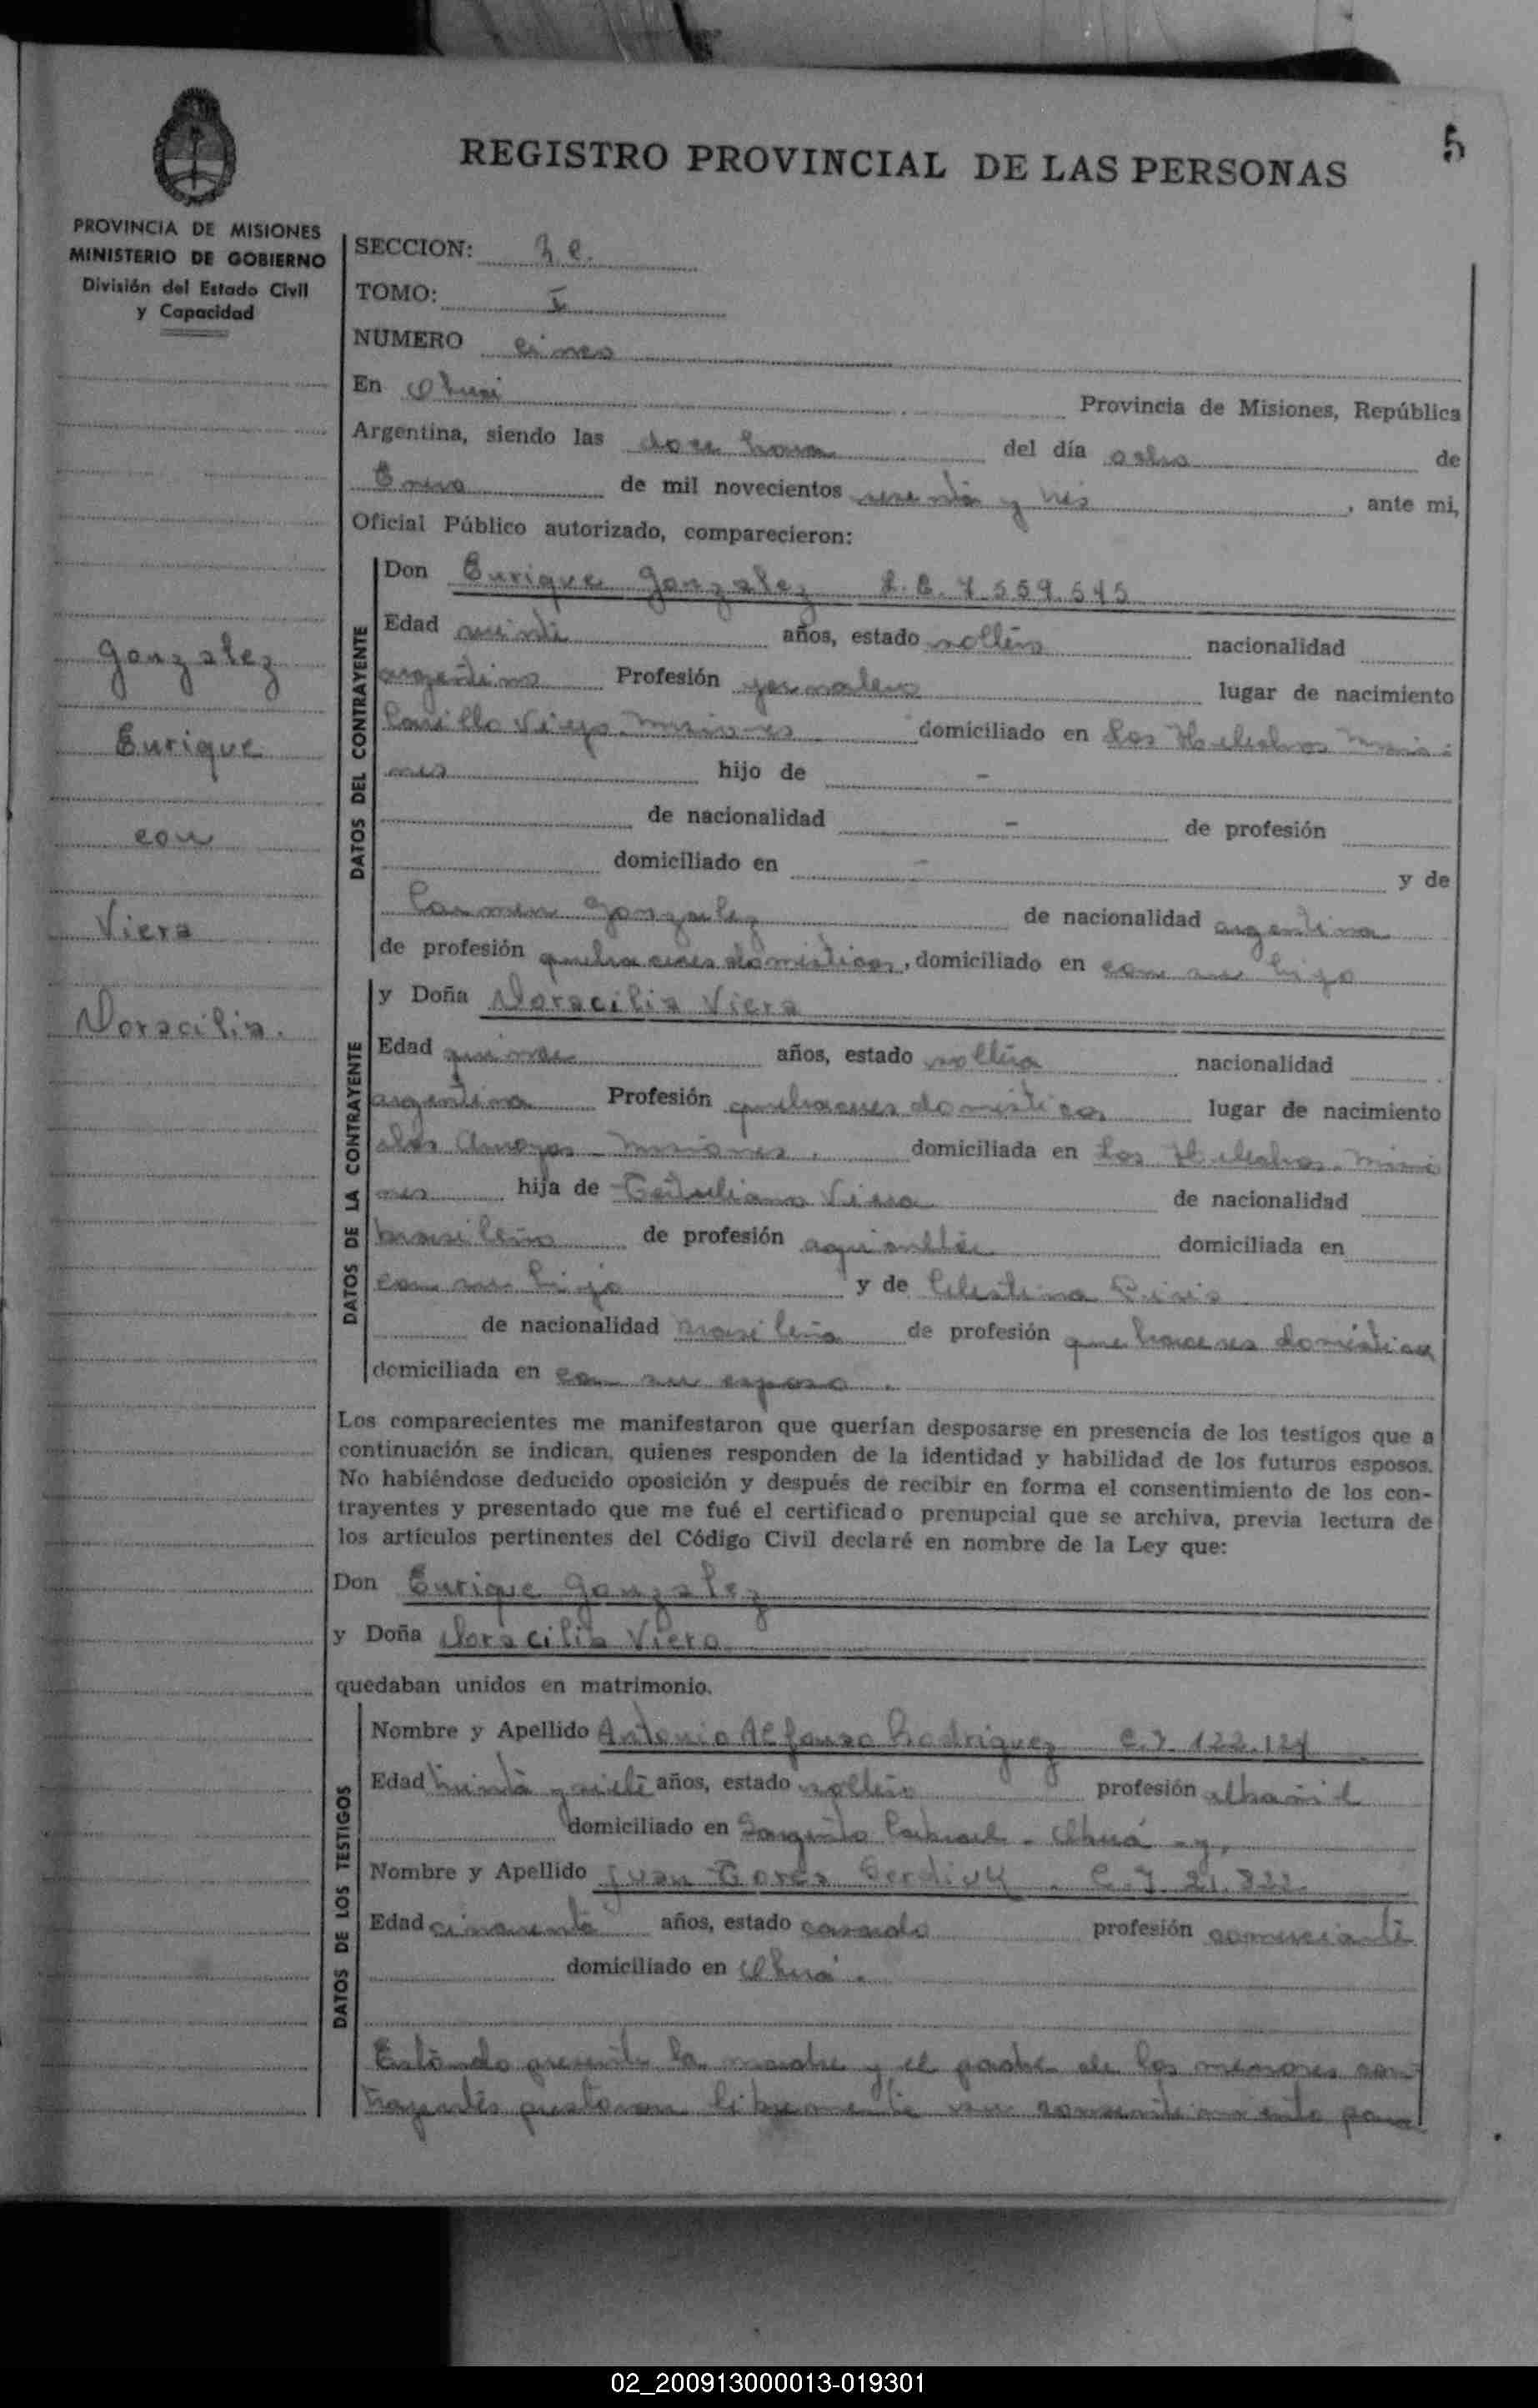 5
REGISTRO PROVINCIAL DE LAS PERSONAS
PROVINCIA DE MISIONES
MINISTERIO DE GOBIERNO
División del Estado Civil
y Capacidad
Gonzalez
Enrique
con
Viera
Doracilia.
SECCION:
TOMO: I
NUMERO cinco
En Oberá Provincia de Misiones, República
Argentina, siendo las doce horas del día ocho de
Enero de mil novecientos sesenta y tres, ante mi,
Oficial Público autorizado, comparecieron:
DATOS DEL CONTRAYENTE
Don Enrique Gonzalez L.E. 7.559.545
Edad veinte años, estado soltero nacionalidad
argentino Profesión jornalero lugar de nacimiento
Cerrillo Viejo. Misiones domiciliado en Los Helechos Misio-
nes hijo de -
de nacionalidad - de profesión
domiciliado en - y de
Carmen Gonzalez de nacionalidad argentina
de profesión quehaceres domésticos, domiciliado en con su hijo
DATOS DE LA CONTRAYENTE
y Doña Doracilia Viera
Edad quince años, estado soltera nacionalidad
argentina Profesión quehaceres domésticos lugar de nacimiento
Dos Arroyos - Misiones. domiciliada en Los Helechos. Misio
nes hija de Viera de nacionalidad
brasileño de profesión agricultor domiciliada en
con su hija y de Celestina
de nacionalidad brasileña de profesión quehaceres domésticos
domiciliada en con su esposo.
Los comparecientes me manifestaron que querían desposarse en presencia de los testigos que a
continuación se indican, quienes responden de la identidad y habilidad de los futuros esposos.
No habiéndose deducido oposición y después de recibir en forma el consentimiento de los con-
trayentes y presentado que me fué el certificado prenupcial que se archiva, previa lectura de
los artículos pertinentes del Código Civil declaré en nombre de la Ley que:
Don Enrique Gonzalez
y Doña Doracilia Viera
quedaban unidos en matrimonio.
DATOS DE LOS TESTIGOS
Nombre y Apellido Antonio Alfonso Rodriguez C.I. 122.127
Edad treinta y siete años, estado soltero profesión albañil
domiciliado en Sargento Cabral - Oberá - y,
Nombre y Apellido Juan C.I. 21.822
Edad cincuenta años, estado casado profesión comerciante
domiciliado en Oberá.
Estando presente la madre y el padre de los menores con-
trayentes prestaron libremente su consentimiento para
02_200913000013-019301